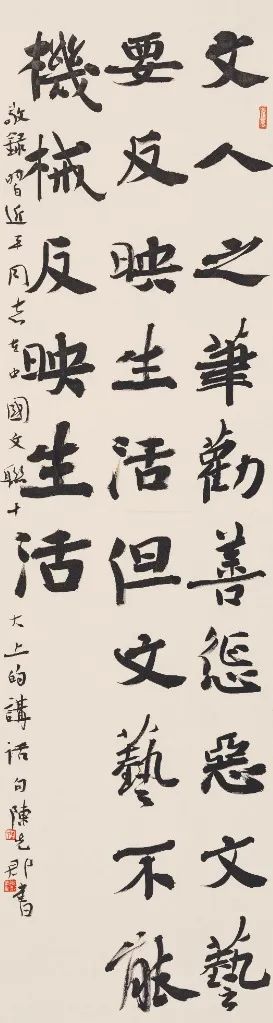 文人之筆勸善懲惡文藝
要反映生活但文藝不能
機械反映生活
敬録習近平同志在中國文聯十大上的講話句陳先郡書